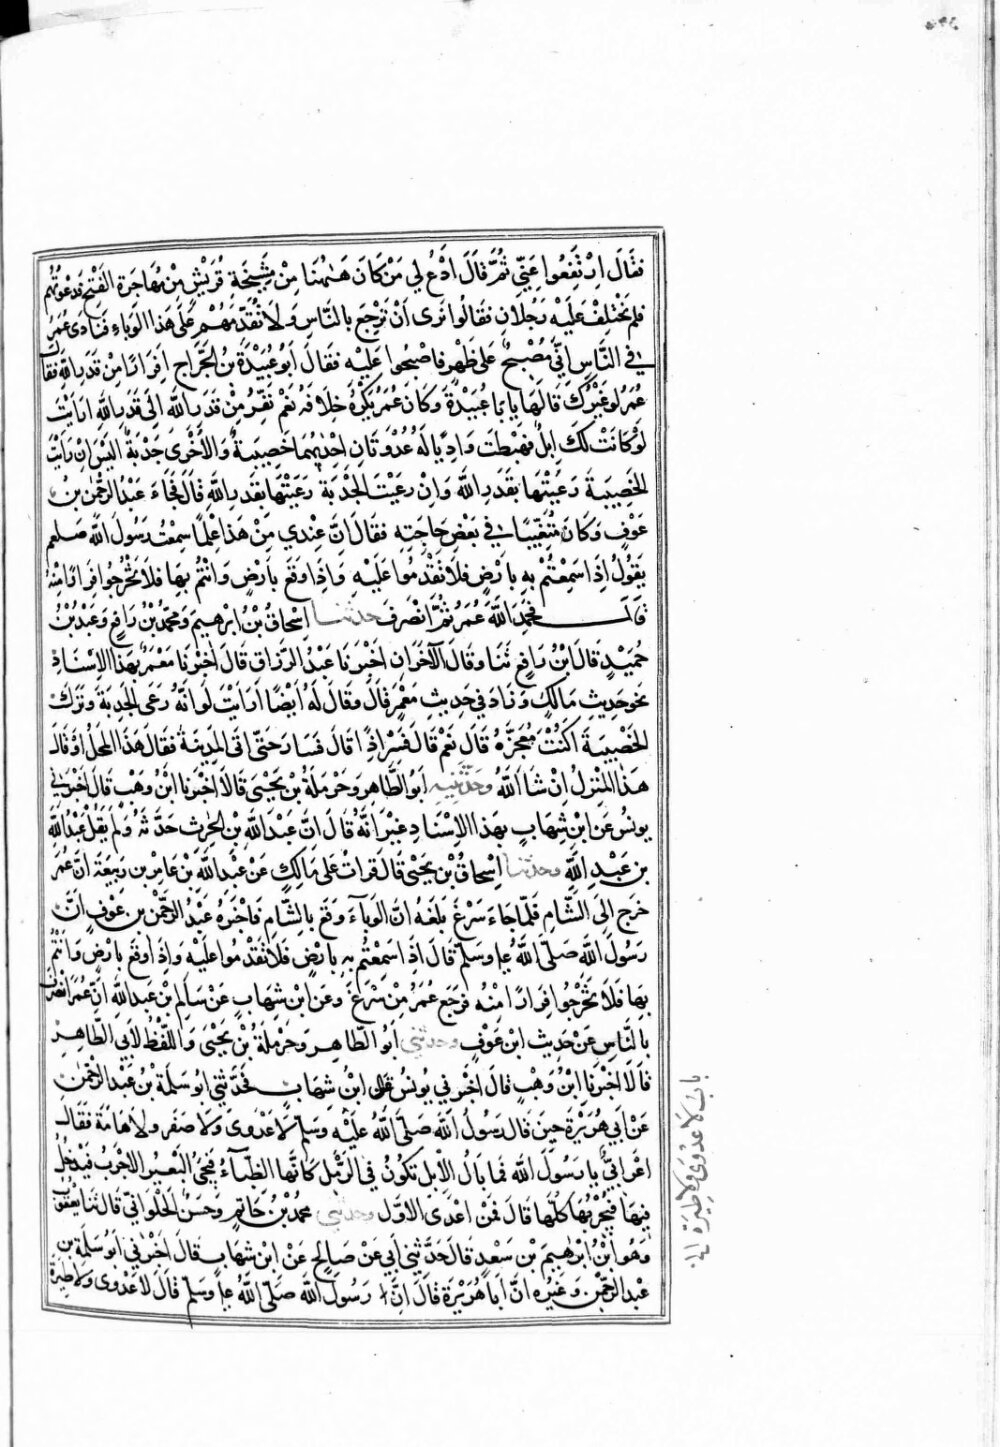 فقال ارتفعوا عني ثم قال ادع لي من كان هاهنا من مشيخة قريش من مهاجرة الفتح فدعوتهم
فلم يختلف عليه رجلان فقالوا نرى أن ترجع بالناس ولا تقدمهم على هذا الوباء فنادى عمر
في الناس إني مصبح على ظهر فاصبحوا عليه فقال أبو عبيدة بن الجراح افرارا من قدر الله فقال
عمر لو غيرك قالها يا با عبيدة وكان عمر يكره خلافه نعم نفر من قدر الله إلى قدر الله ارأيت
لو كانت لك ابل فهبطت واديا له عدوتان احديهما خصيبة والأخرى جدبة اليس ان رأيت
الخصيبة رعيتها بقدر الله وان رعيت الجدبة رعيتها بقدر الله قال فجاء عبد الرحمن بن
عوف وكان متغيبا في بعض حاجته فقال ان عندي من هذا علما سمعت رسول الله صلعم
يقول إذا سمعتم به بارض فلا تقدموا عليه وإذا وقع بارض وانتم بها فلا تخرجوا فرارا منه
قال فحمد الله عمر ثم انصرف حدثنا اسحاق بن ابرهيم ومحمد بن رافع وعبد بن
حميد قال ابن رافع ثنا وقال الآخران اخبرنا عبد الرزاق قال اخبرنا معمر بهذا الإسناد
نحو حديث مالك وزاد في حديث معمر قال وقال له أيضا ارأيت لو انه رعى الجدبة وترك
الخصيبة اكنت معجزه قال نعم قال فسر إذا قال فسار حتى اتى المدينة فقال هذا المحل أو قال
هذا المنزل ان شا الله وحدثنيه أبو الطاهر وحرملة بن يحيى قالا اخبرنا ابن وهب قال اخبرني
يونس عن ابن شهاب بهذا الإسناد غير انه قال ان عبد الله بن الحرث حدثه ولم يقل عبد الله
بن عبد الله وحدثنا اسحاق بن يحيى قال قرات على مالك عن عبد الله بن عامر بن ربيعة ان عمر
خرج إلى الشام فلما جاء سرغ بلغه ان الوباء وقع بالشام فاخبره عبد الرحمن بن عوف ان
رسول الله صلى الله علي وسلم قال إذا سمعتم به بارض فلا تقدموا عليه وإذا وقع بارض وانتم
بها فلا تخرجوا فرارا منه فرجع عمر من سرغ وعن ابن شهاب عن سالم بن عبد الله ان عمر انصرف
بالناس عن حديث ابن عوف وحدثني أبو الطاهر وحرملة بن يحيى واللفظ لأبي الطاهر
قالا اخبرنا ابن وهب قال اخبرني يونس قال ابن شهاب فحدثني ابو سلمة بن عبد الرحمن
عن أبي هريرة حين قال رسول الله صلى الله عليه وسلم لا عدوى ولا صفر ولا هامة فقال
اعرابي يا رسول الله فما بال الإبل تكون في الرمل كانها الظباء فيجئ البعير الاجرب فيدخل
فيها فيجربها كلها قال فمن اعدى الاول وحدثني محمد بن حاتم وحسن الحلواني قال ثنا يعقوب
وهو ابن ابرهيم بن سعد قال حدثني أبي عن صالح عن ابن شهاب قال اخبرني أبو سلمة بن
عبد الرحمن وغيره ان أبا هريرة قال ان رسول الله صلى الله علي وسلم قال لا عدوى ولا طيرة
باب لا عدوى ولا طيرة